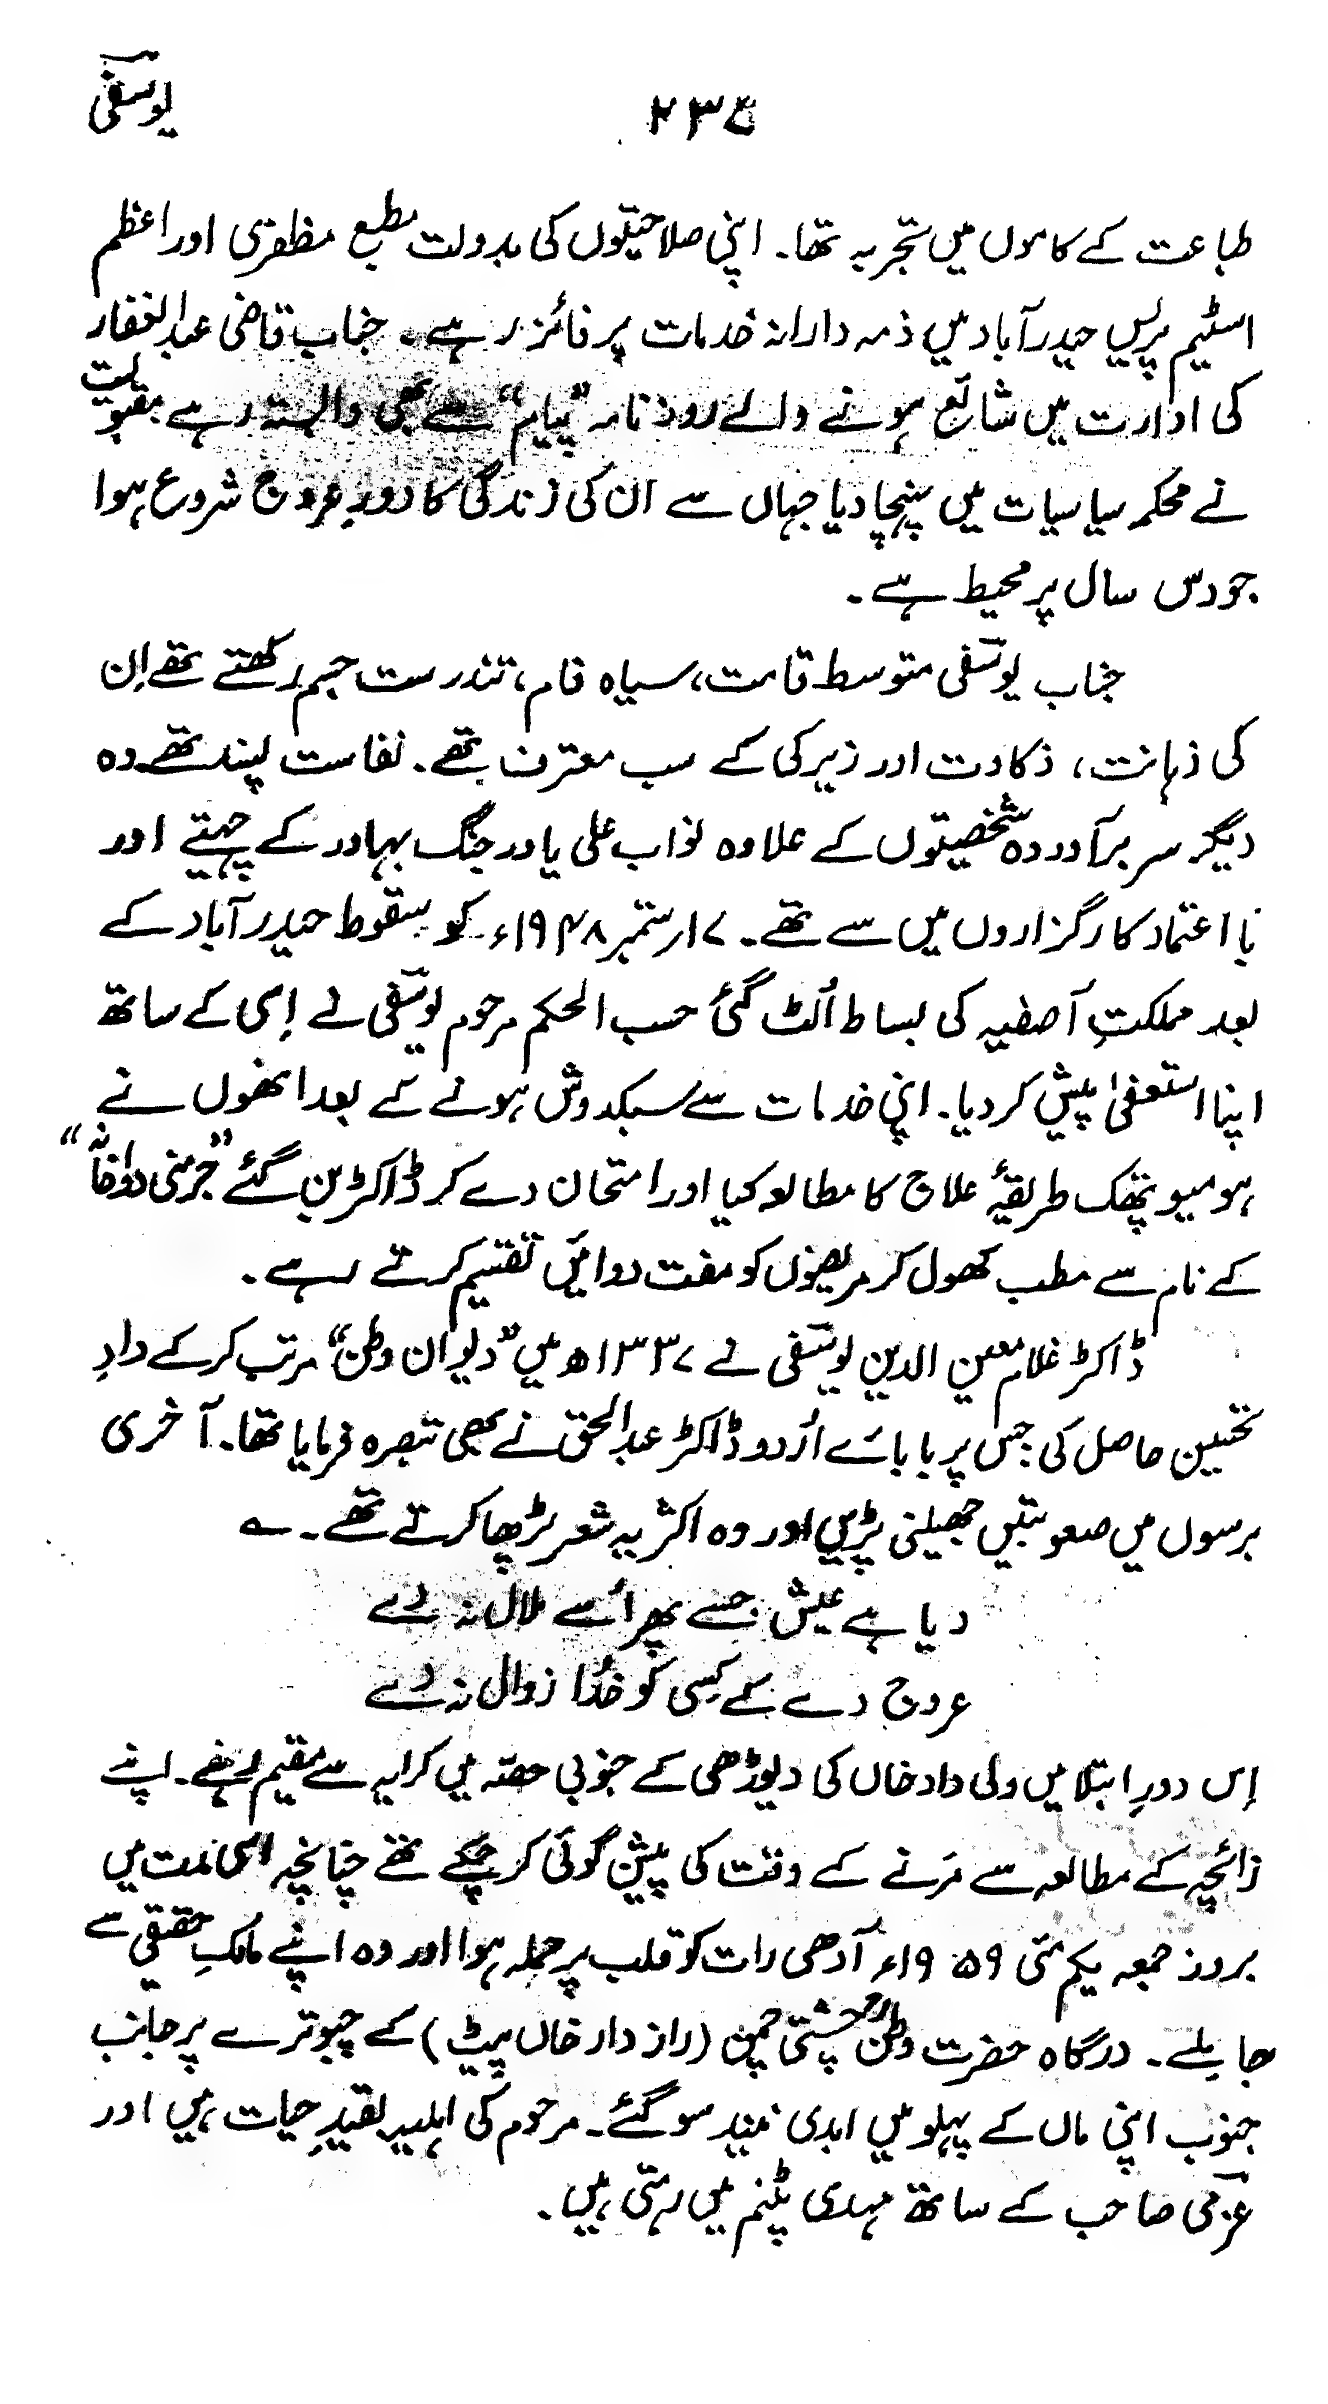 ۲۳۵
یوسفیؔ
طباعت کے کاموں میں تجربہ تھا۔ اپنی صلاحیتوں کی بدولت مطبع مظفری اور اعظم
اسٹیم پریس حیدرآباد میں ذمہ دارانہ خدمات پر فائز رہے۔ جناب قاضی عبدالغفار
کی ادارت میں شائع ہونے والے روز نامہ ”پیام“ سے بھی وابستہ رہے مقبولیت
نے محکمہ سیاسیات میں پہنچا دیا جہاں سے ان کی زندگی کا دورِ عروج شروع ہوا
جو دس سال پر محیط ہے۔
جناب یوسفیؔ متوسط قامت، سیاہ فام، تندرست جسم رکھتے تھے اِن
کی ذہانت، ذکاوت اور زیرکی کے سب معترف تھے۔ نفاست پسند تھے وہ
دیگر سر برآوردہ شخصیتوں کے علاوہ نواب علی یاور جنگ بہادر کے چہیتے اور
با اعتماد کارگزاروں میں سے تھے۔ ۱۷ر ستمبر ۱۹۴۸ء کو سقوط حیدرآباد کے
بعد مملکتِ آصفیہ کی بساط اُلٹ گئی حسب الحکم مرحوم یوسفیؔ نے اِسی کے ساتھ
اپنا استعفیٰ پیش کر دیا۔ اپنی خدمات سے سبکدوش ہونے کے بعد انھوں نے
ہومیوپیتھک طریقۂ علاج کا مطالعہ کیا اور امتحان دے کر ڈاکٹر بن گئے ”جرمنی دواخانہ“
کے نام سے مطب کھول کر مریضوں کو مفت دوائیں تقسیم کرتے رہے۔
ڈاکٹر غلام معین الدین یوسفیؔ نے ۱۳۳۷ھ میں ”دیوان وطن“ مرتب کر کے دادِ
تحسین حاصل کی جس پر بابائے اُردو ڈاکٹر عبدالحق نے بھی تبصرہ فرمایا تھا۔ آخری
برسوں میں صعوبتیں جھیلنی پڑیں اور وہ اکثر یہ شعر پڑھا کرتے تھے۔ ؎
دیا ہے عیش جسے پھر اُسے ملال نہ دے
عروج دے کے کسی کو خُدا زوال نہ دے
اِس دورِ ابتلا میں ولی داد خاں کی دیوڑھی کے جنوبی حصّہ میں کرایہ سے مقیم رہے۔ اپنے
زائچہ کے مطالعہ سے مَرنے کے وقت کی پیشن گوئی کر چکے تھے چنانچہ اسی مدت میں
بروز جمعہ یکم مئی ۱۹۵۹ء آدھی رات کو قلب پر حملہ ہوا اور وہ اپنے مالکِ حقیقی سے
جا ملے۔ درگاہ حضرت وطنؒ چشتی چمن (راز دار خاں پیٹ) کے چبوترے پر جانب
جنوب اپنی ماں کے پہلو میں ابدی نیند سو گئے۔ مرحوم کی اہلیہ بقیدِ حیات ہیں اور
عزمیؔ صاحب کے ساتھ مہدی پٹنم میں رہتی ہیں۔